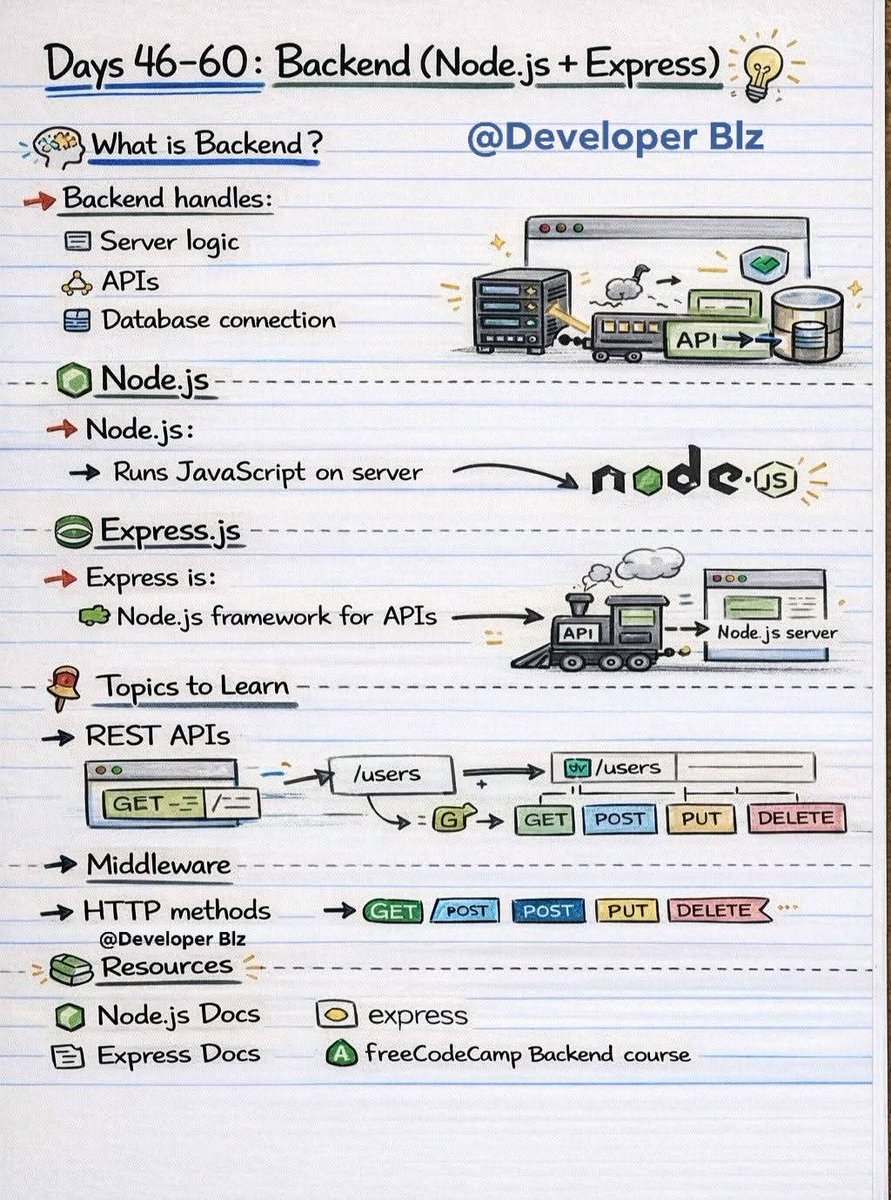 Days 46-60: Backend (Node.js + Express)
What is Backend?
@Developer Blz
Backend handles:
Server logic
APIs
Database connection
API
Node.js
Node.js:
Runs JavaScript on server
node.JS
Express.js
Express is:
Node.js framework for APIs
API
Node.js server
Topics to Learn
REST APIs
GET
/users
/users
G
GET POST PUT DELETE
Middleware
HTTP methods
GET POST POST PUT DELETE
@Developer Blz
Resources
Node.js Docs
express
Express Docs
A freeCodeCamp Backend course